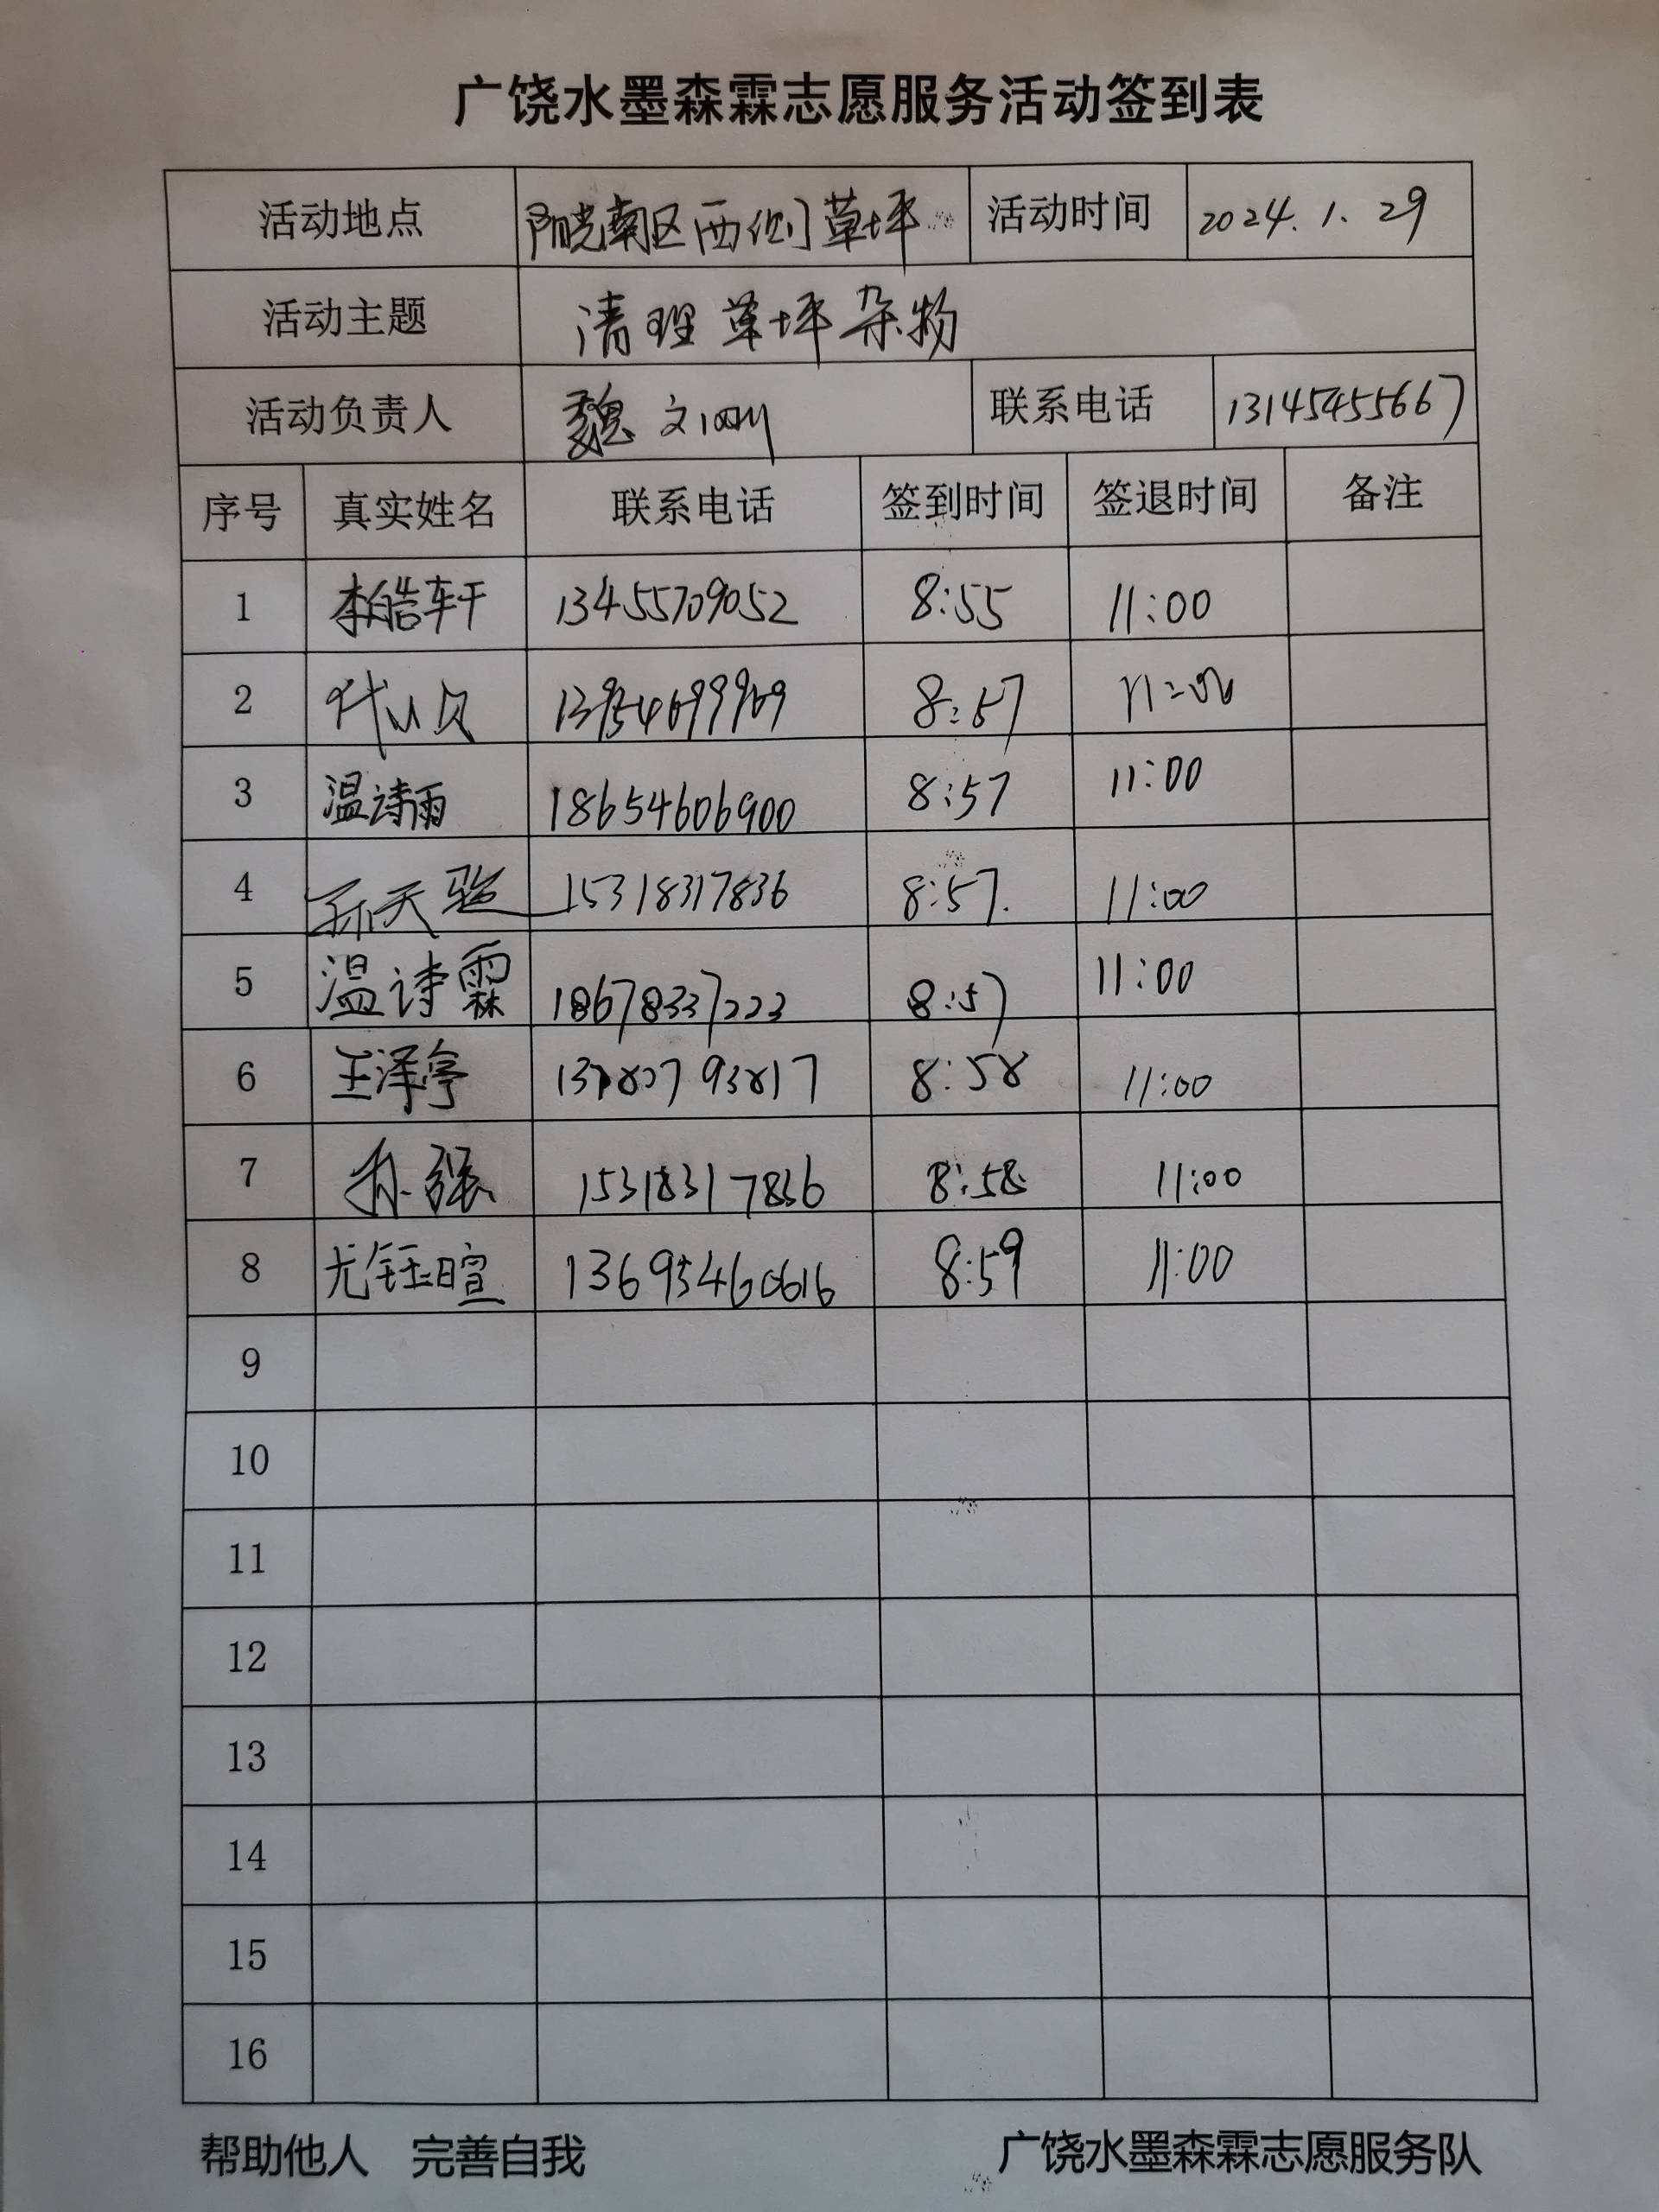 广饶水墨森霖志愿服务活动签到表
活动地点 阳光南区西侧草坪 活动时间 2024.1.29
活动主题 清理草坪杂物
活动负责人 魏 联系电话 13145455667
序号 真实姓名 联系电话 签到时间 签退时间 备注
1 李皓轩 13455709052 8:55 11:00
2 8:57 11:00
3 温诗雨 18654606900 8:57 11:00
4 孙天 15318317836 8:57. 11:00
5 温诗霖 18678337223 8:57 11:00
6 王泽亭 8:58 11:00
7 孙强 15318317836 8:58 11:00
8 尤钰暄 13695460616 8:59 11:00
9
10
11
12
13
14
15
16
帮助他人 完善自我 广饶水墨森霖志愿服务队